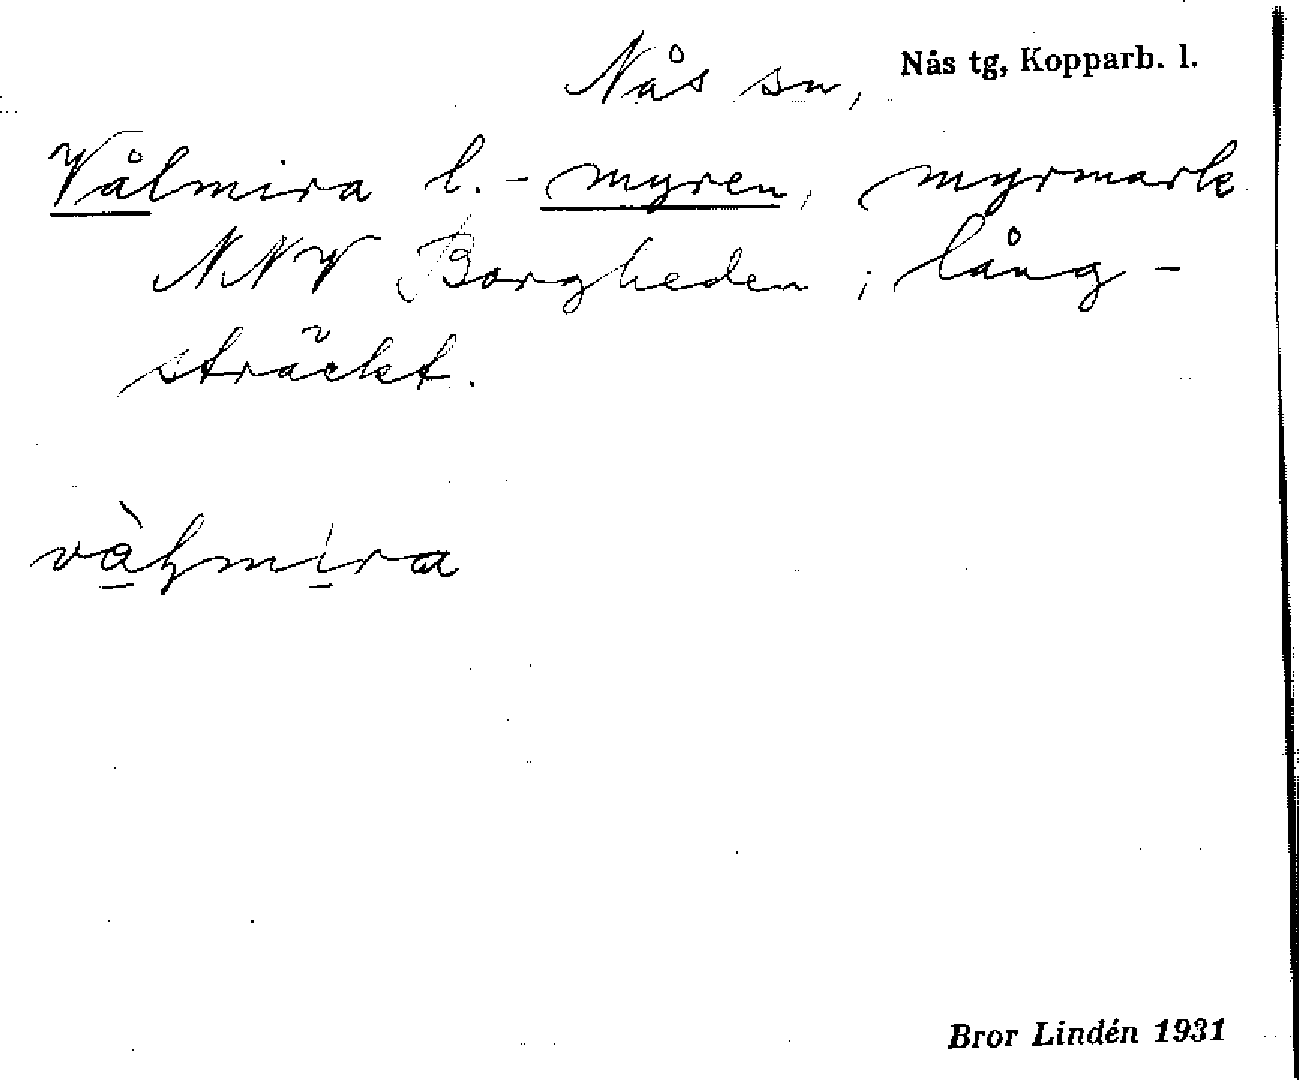 Nås sn, Nås tg, Kopparb. l.
Vålmira l. - myren, myrmark
NNV Borgheden; lång-
sträckt.
Bror Lindén 1931